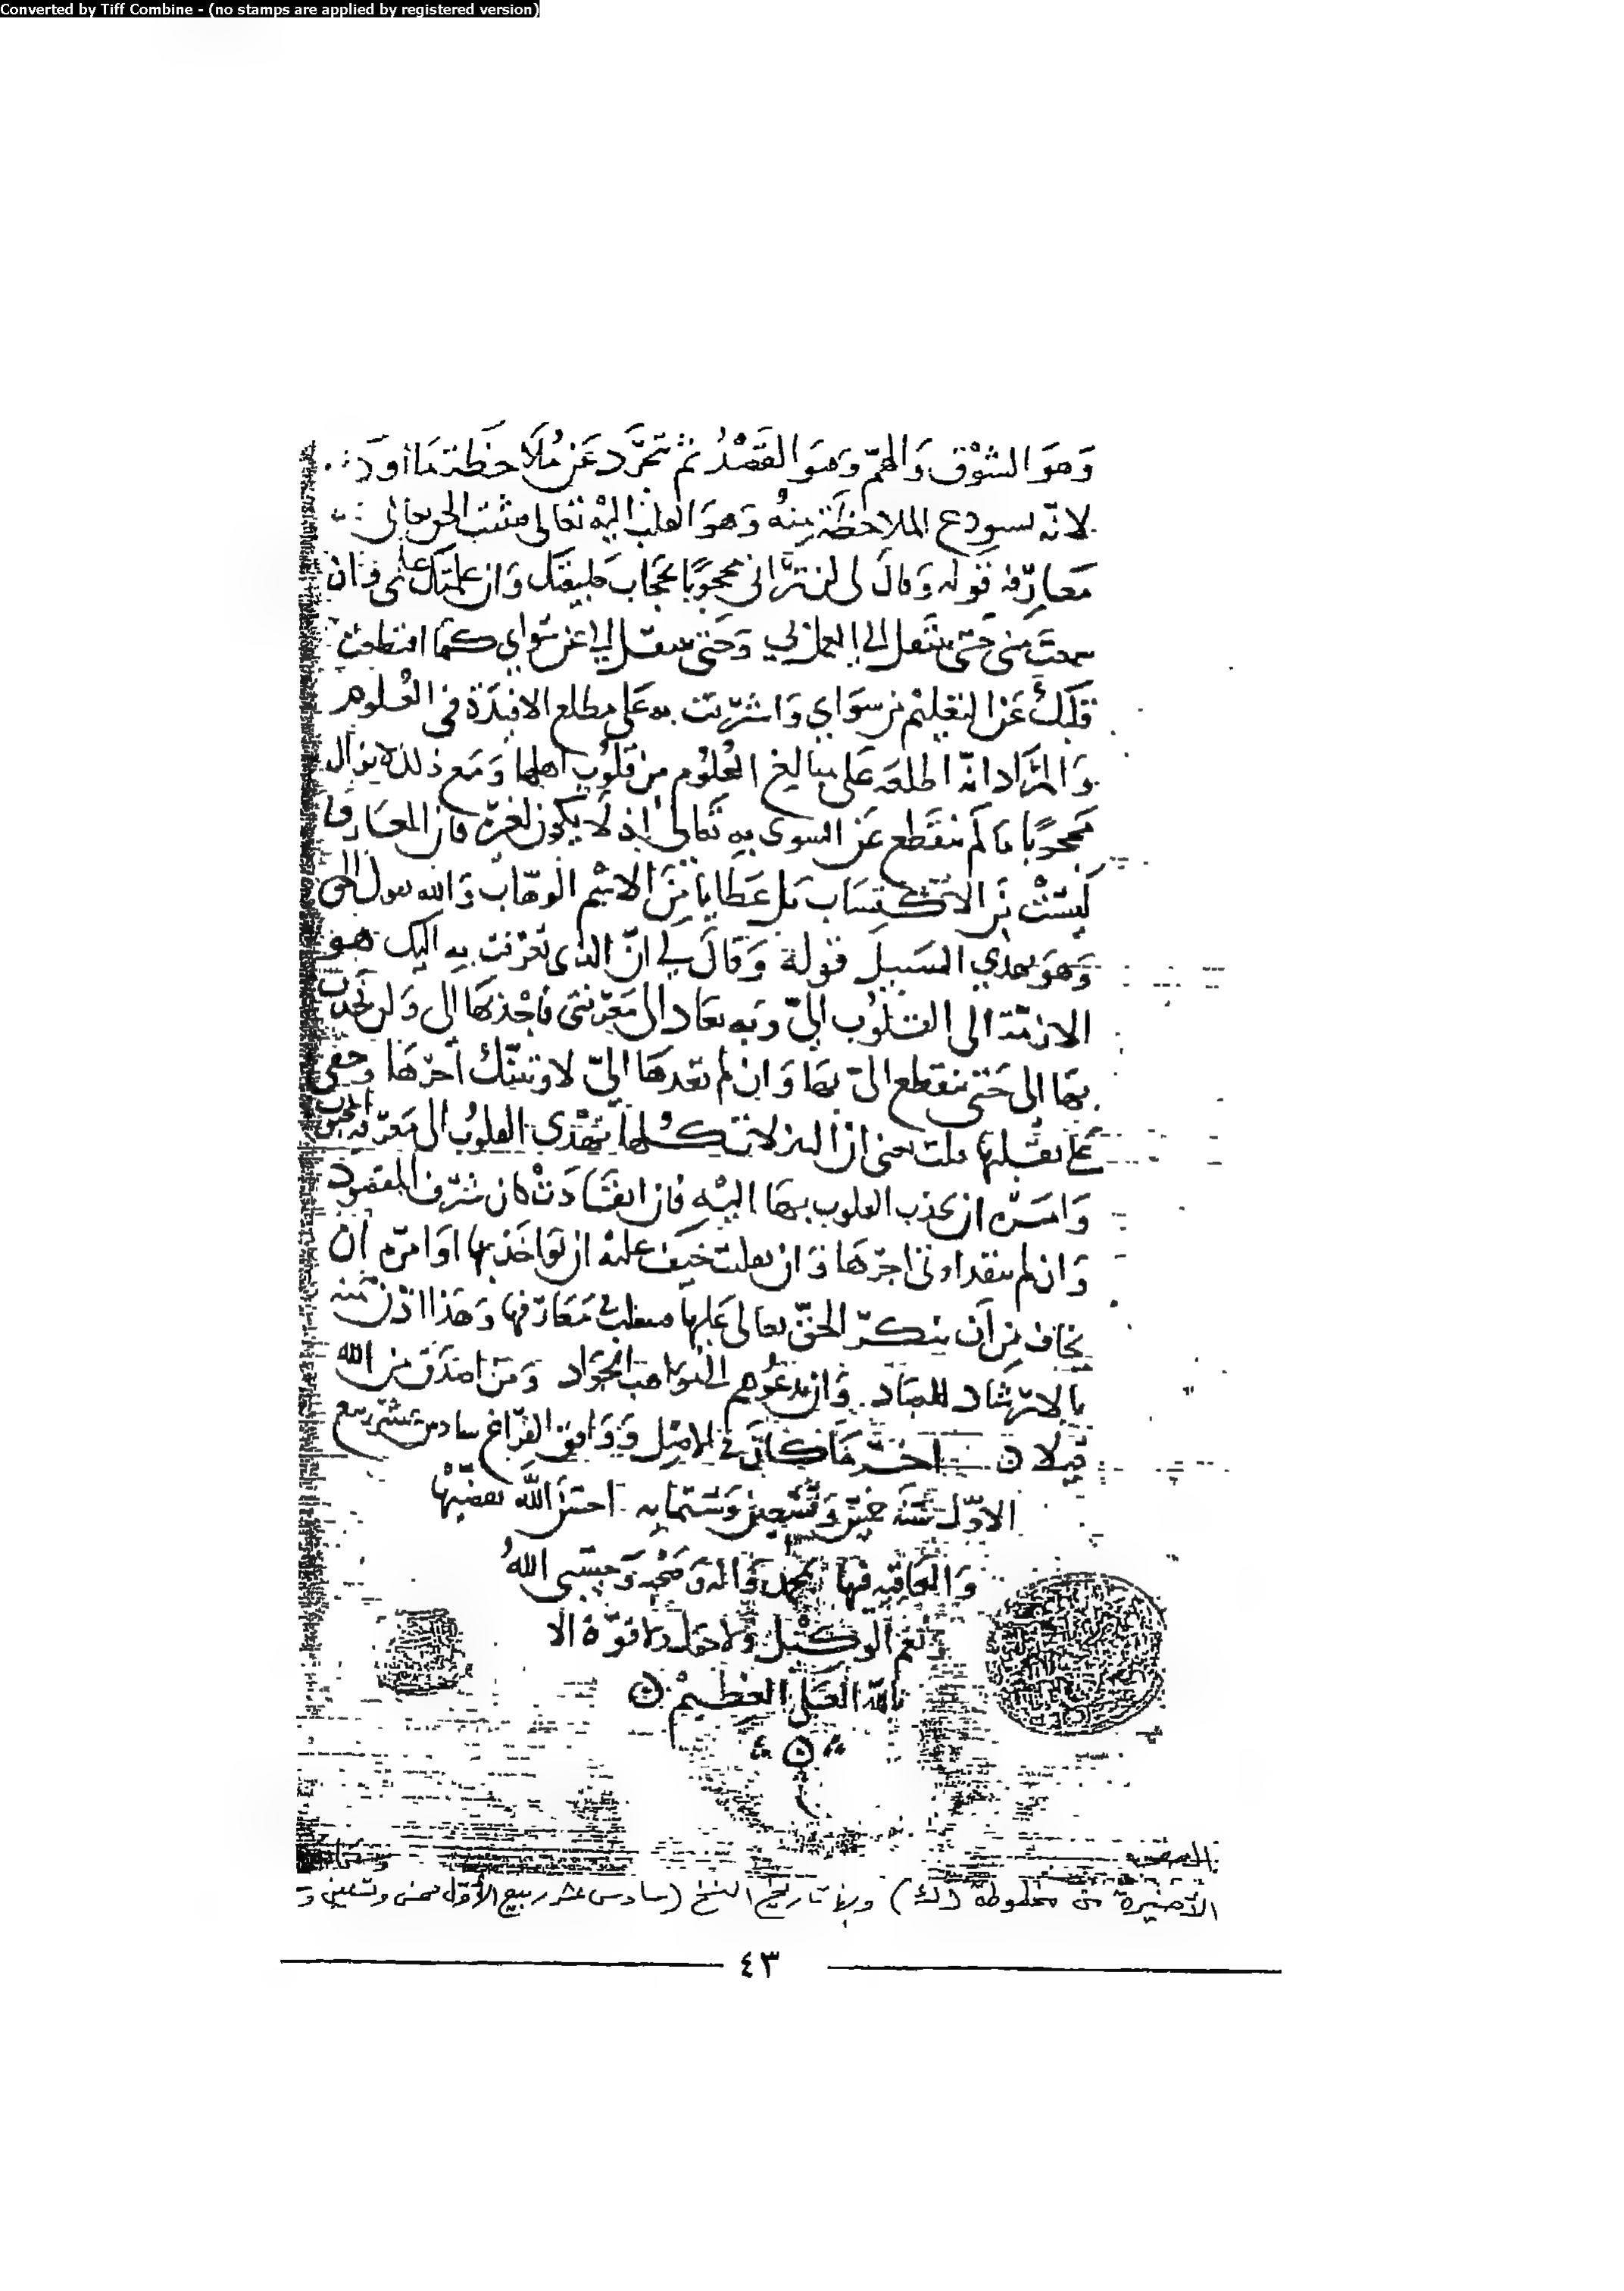 Converted by Tiff Combine - (no stamps are applied by registered version)
وَهوَ الشوْق وَالهمّ وَهوَ القصْدُ ثم تجرَّد عَن مُلَاحَظة مَا أورد
لانّه يستودع الملاحظة منهُ وَهوَ القلب اليْه تعَالى
مَعارفه قوله وَقالَ لى لن ترَانى محجوبًا بحجَاب خليقتك وَان علمتك علمى فان
سمعتَ منى حَتى تنتقل الى العمل لي وَحَتى تنتقل الي عن سِوَاي كمَا اقتطعت
قلبَكَ عَن التعليْم من سوَاي وَاشرفت به عَلى مطلع الافئدَة فى العُلوم
وَالمرَاد انّه اطلعَه عَلى مبَالغ العُلوُم من قلوُب اهلهَا وَمَع ذلك لا يزال
محجوبًا مَا لم ينقطع عَن السوى به تَعَالى إذ لَا يكون لغيره فان المعَارف
ليسَتْ من الاكتسَاب بل عَطايا منَ الاسْم الوهّاب وَالله يقول الحق
وَهوَ يهدي السَبيل قولهُ وَقالَ لي انّ الذى تعرّفت به اليك هو
الازمّة الى القلوُب اليّ وَبه تقاد الى مَعرفتى فاجْذبهَا الى وَلن تجذب
بهَا الى حَتى تنقطع الىّ بهَا وَان لم تقدهَا اليّ لاوتيتّك أجرَهَا وحقى
عَلى تقلبهَا قلت يعنى ان التنزلات كلهَا تهْدى القلوُب الى مَعرفة الحق
وَامَره ان يجذب القلوب بهَا اليْه فان انقَادَتْ كان شرَف المقصُود
وَان لم تنقد اوتى اجرَهَا وَان تقلبت خيف عليْه ان يؤاخَذ بهَا اوَامره ان
يخاف من أن يتنكرّ الحَقّ تعَالى عَليهَا فى مَعَارفهَا وَهَذا اذن منه
بالارشَاد للعبَاد وَان يدعوُهم الى الوَاهب الجَوَاد وَمَن اصْدَق من الله
قيلا اخر مَا كان فى الاصْل وَوَافق الفرَاغ سادس عشر ربيع
الاوّل سَنة خمسّ وَتسْعين وَستمايه احسَن الله تقضيّهَا
وَالعَاقبه فيها بمحمّد وَاله وَصَحْبه وَحسْبى اللهُ
وَنعم الوَكيْل وَلا حَول وَلا قوّة الا
بالله العَلى العَظيمْ
الصفحة
الأخيرة من مخطوطة (ك) وبها تاريخ النسخ (سادس عشر ربيع الأوّل خمس وتسعين و
٤٣